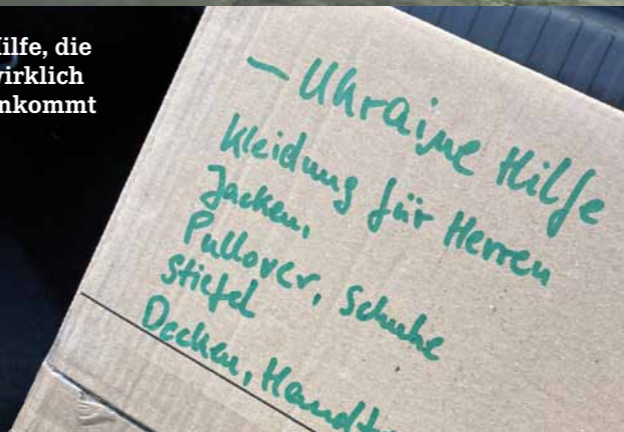 ilfe, die
wirklich
nkommt
– Ukraine Hilfe
Kleidung für Herren
Jacken,
Pullover, Schuhe
Stiefel
Decken, Handt